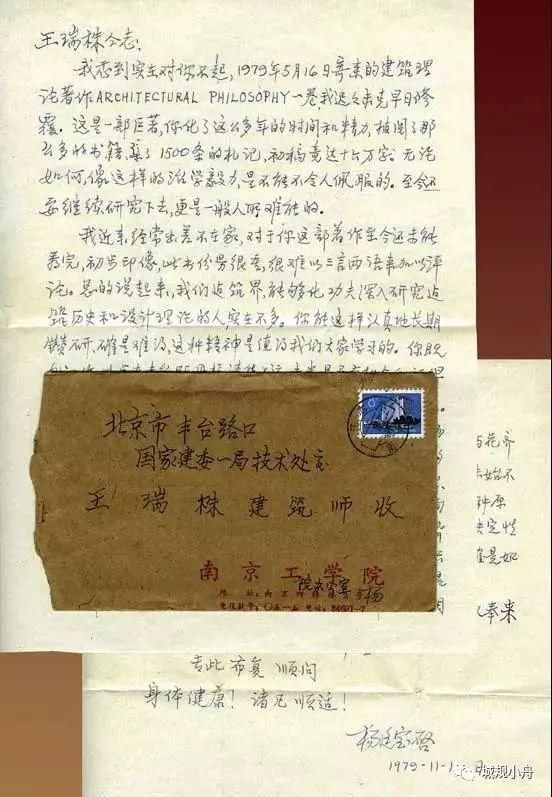 王瑞株同志:
我感到实在对你不起,1979年5月16日寄来的建筑理
论著作ARCHITECTURAL PHILOSOPHY一卷,我迟迟未克早日修
覆。这是一部巨著,你化了这么多年的时间和精力,披阅了那
么多的书籍,集了1500条的札记,初稿竟达十六万字。无论
如何,像这样的治学毅力,是不能不令人佩服的。至今还
要继续研究下去,更是一般人所难能的。
我近来经常出差不在家,对于你这部著作至今还未能
看完,初步印像,此书份量很重,很难以三言两语来加以评
论。总的说起来,我们建筑界,能够化功夫深入研究建
筑历史和设计理论的人实在不多。你能这样认真地长期
钻研,确是难得,这种精神是值得我们大家学习的。你既
北京市丰台路口
国家建委一局技术处
王瑞株建筑师收
南京工学院
院办公室 杨
始不
种原
决定性
是如
奉来
专此布复 顺问
身体健康!诸凡顺适!
杨廷宝启
1979-11-1 日
城规小舟